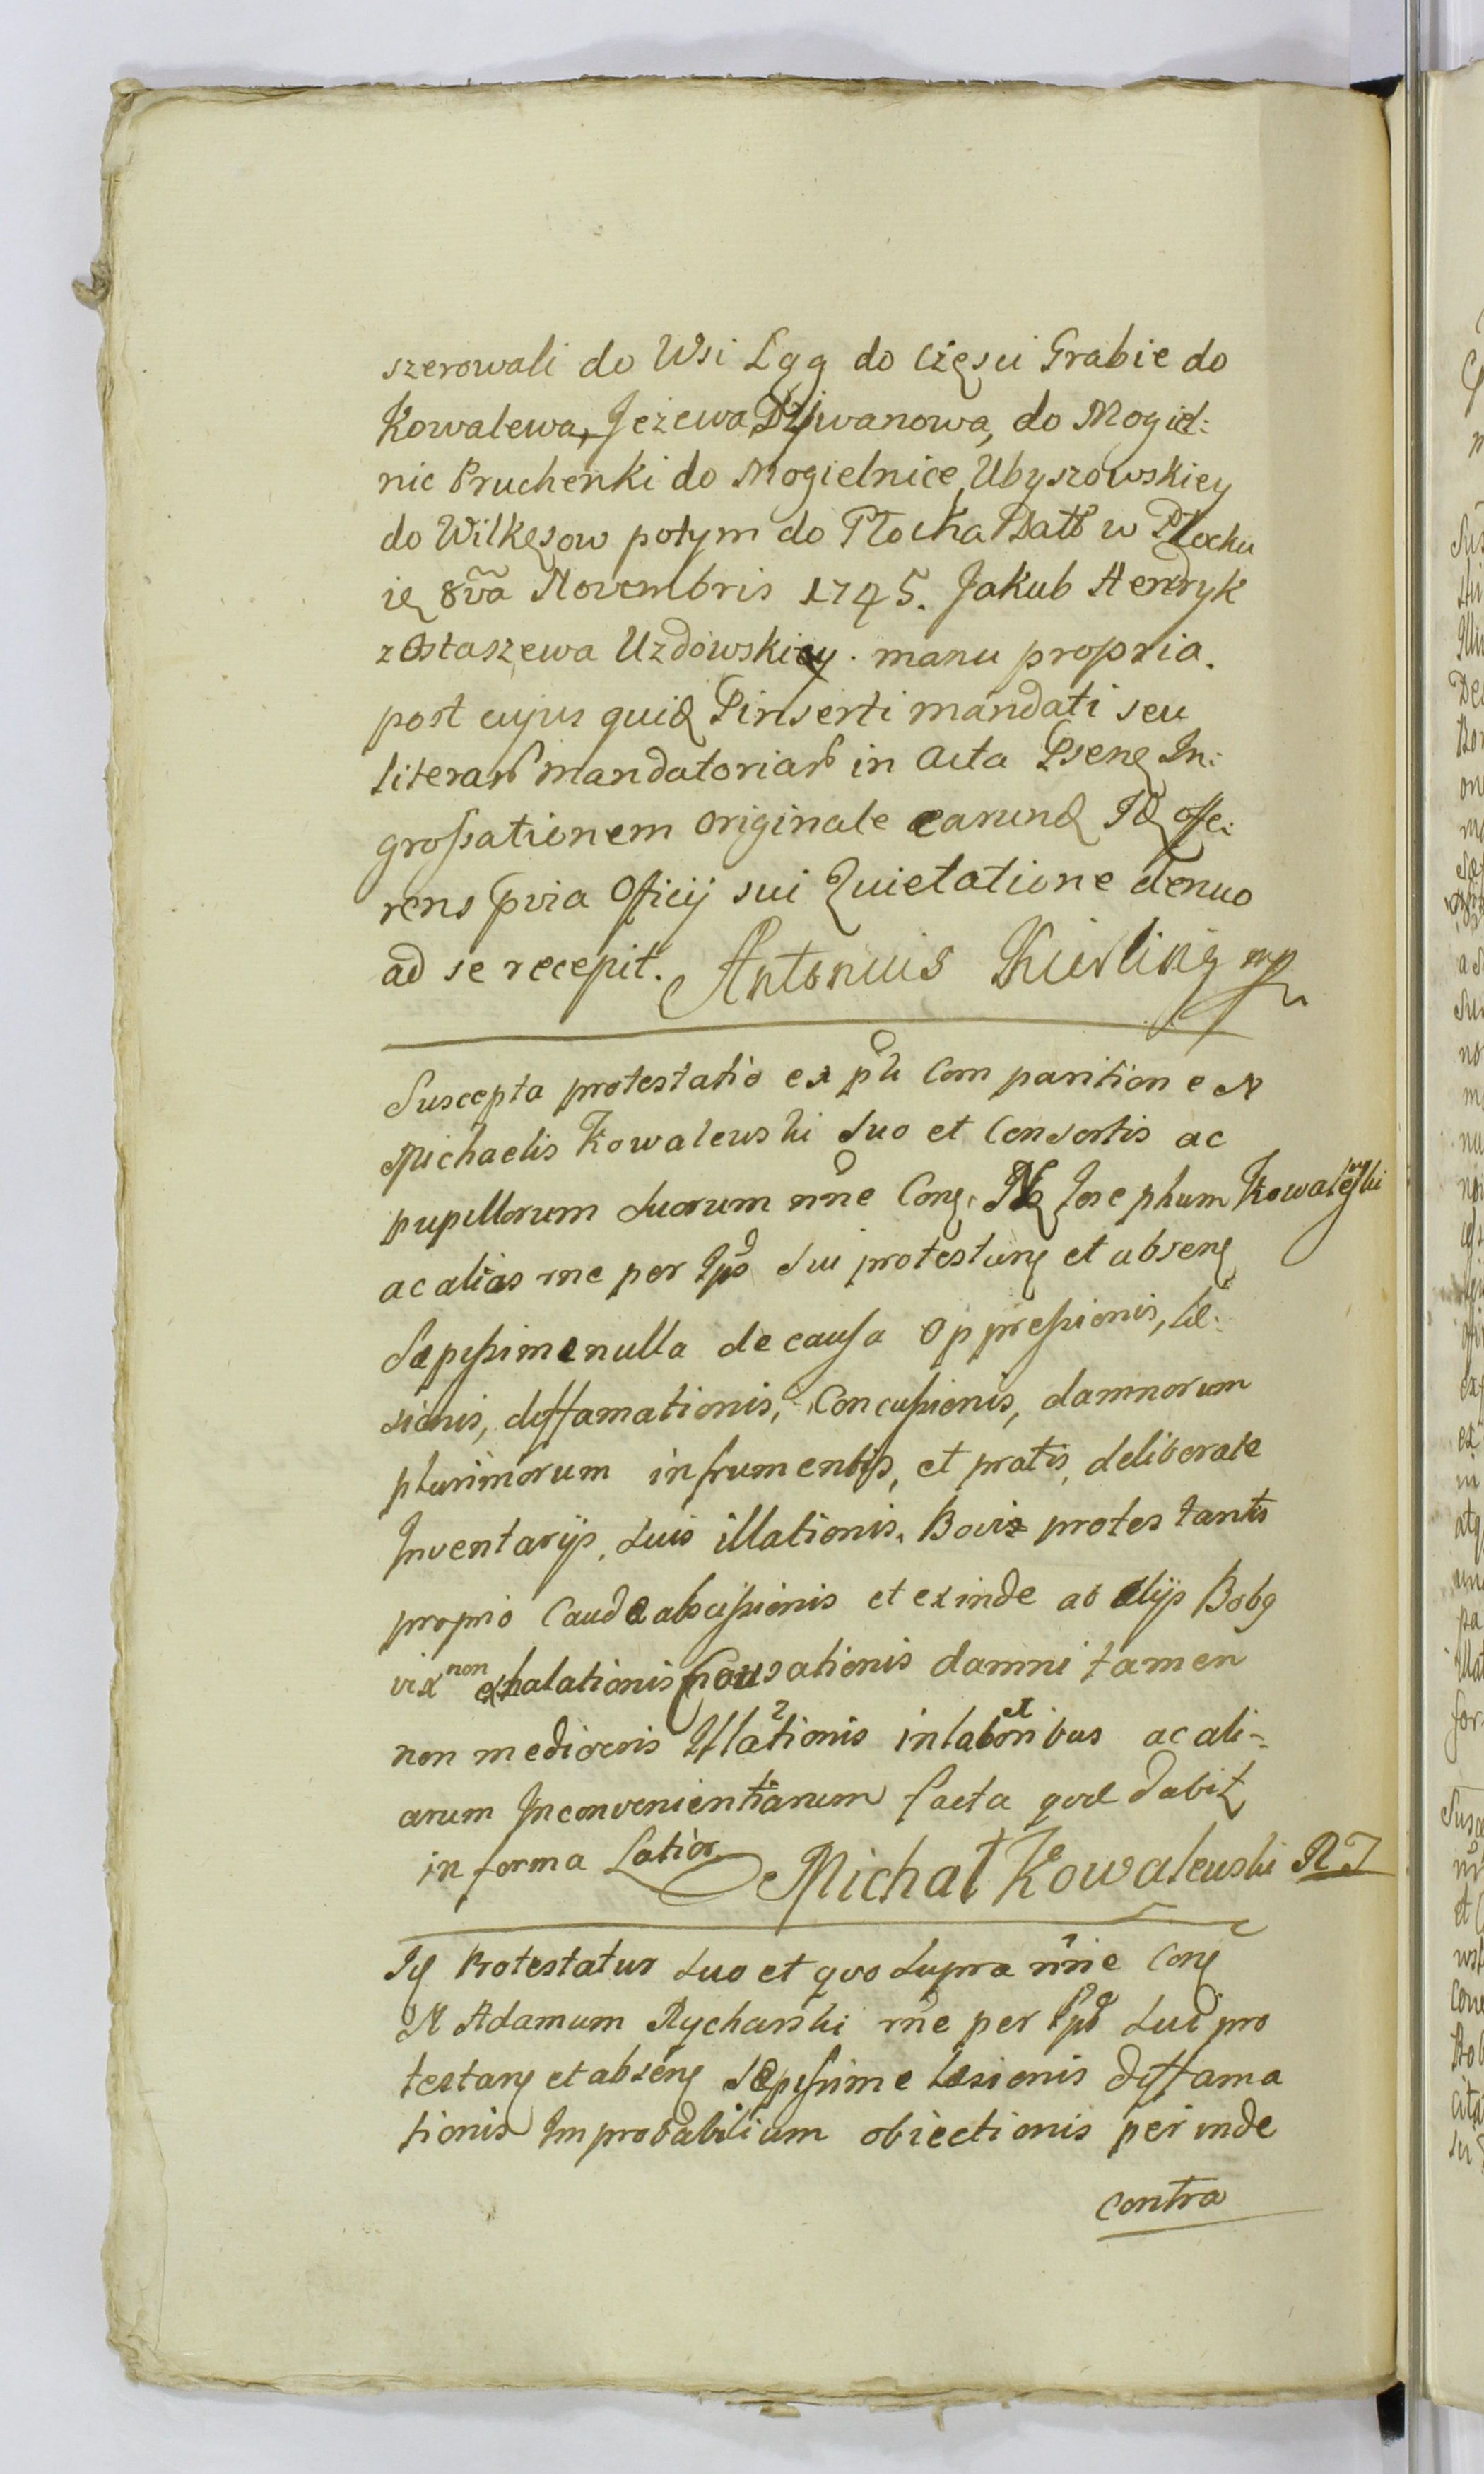 szerowali do Wsi Lgg do Części Grabie do
Kowalewa, Jeżewa Dzÿwanowa, do Mogiel:
nic Pruchenki do Mogielnice, Ubyszowskiey
do Wilkęsow potym do Płocka Datt w Płocku
ię 8va Novembris 1745. Jakub Hendryk
z Ostaszewa Uzdowskiey. manu propria.
post cujus quid Pinserti mandati seu
literar mandatoriar in Acta Psene In:
grossationem Originale earund Id offe:
rens pvia Officij sui Quietatione denuo
ad se recepit. Antonius Kierling mp
Suscepta protestatio ex pli Comparitione N
Michaelis Kowalewski suo et Consortis ac
pupillorum suorum nne Con N Josephum Kowalewski
ac alias rne per Ips sui protestan et absen
Sæpissime nulla de causa Oppressionis, Læ:
sionis, diffamationis, Concussionis, damnorum
plurimorum in frumentijs, et pratis, deliberate
Inventarijs, suis illationis. Bovis protestantis
proprio Caudæ abscissionis et exinde ab alijs Bobq
vix non exhalationis Causationis damni tamen
non mediocris Illationis in laboribus et ac ali-
arum Inconvenientiarum facta qvæ dabit
in forma Latior Michał Kowalewski RT
Id Protestatur suo et qvo supra nne Con
N Adamum Rycharski rne per Ips sui pro
testan et absen Sæpissime Læsionis diffama
tionis Improbabilium obiectionis per inde
contra